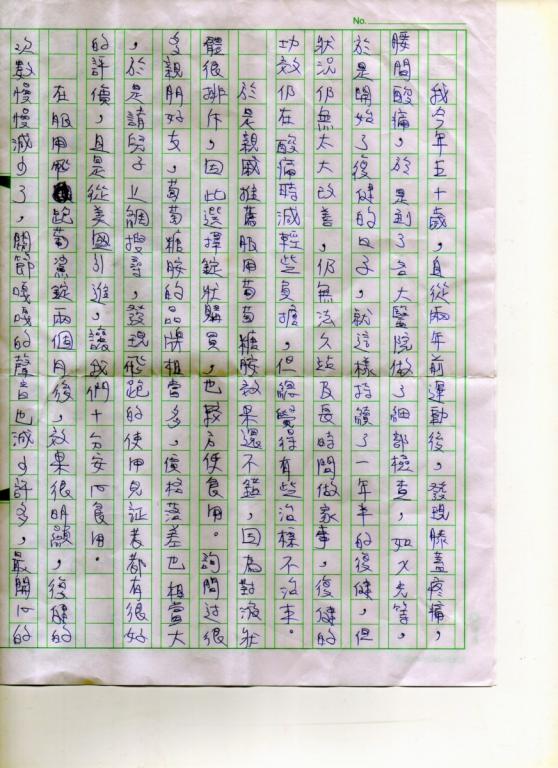 No.
我今年五十歲，自從兩年前運動後，發現膝蓋疼痛，
腰間酸痛，於是到了各大醫院做了細部檢查，如X光等，
於是開始了復健的日子，就這樣持續了一年半的復健，但
狀況仍無太大改善，仍無法久站及長時間做家事，復健的
功效仍在酸痛時減輕些負擔，但總覺得有些治標不治本。
於是親戚推薦服用葡萄糖胺效果還不錯，因為對液狀
體很排斥，因此選擇錠狀購買，也較方便食用。詢問過很
多親朋好友，葡萄糖胺的品牌相當多，價格落差也相當大
，於是請兒子上網搜尋，發現飛跑的使用見証者都有很好
的評價，且是從美國引進，讓我們十分安心食用。
在服用飛跑葡鯊錠兩個月後，效果很明顯，復健的
次數慢慢減少了，關節嘎嘎的聲音也減少許多，最開心的